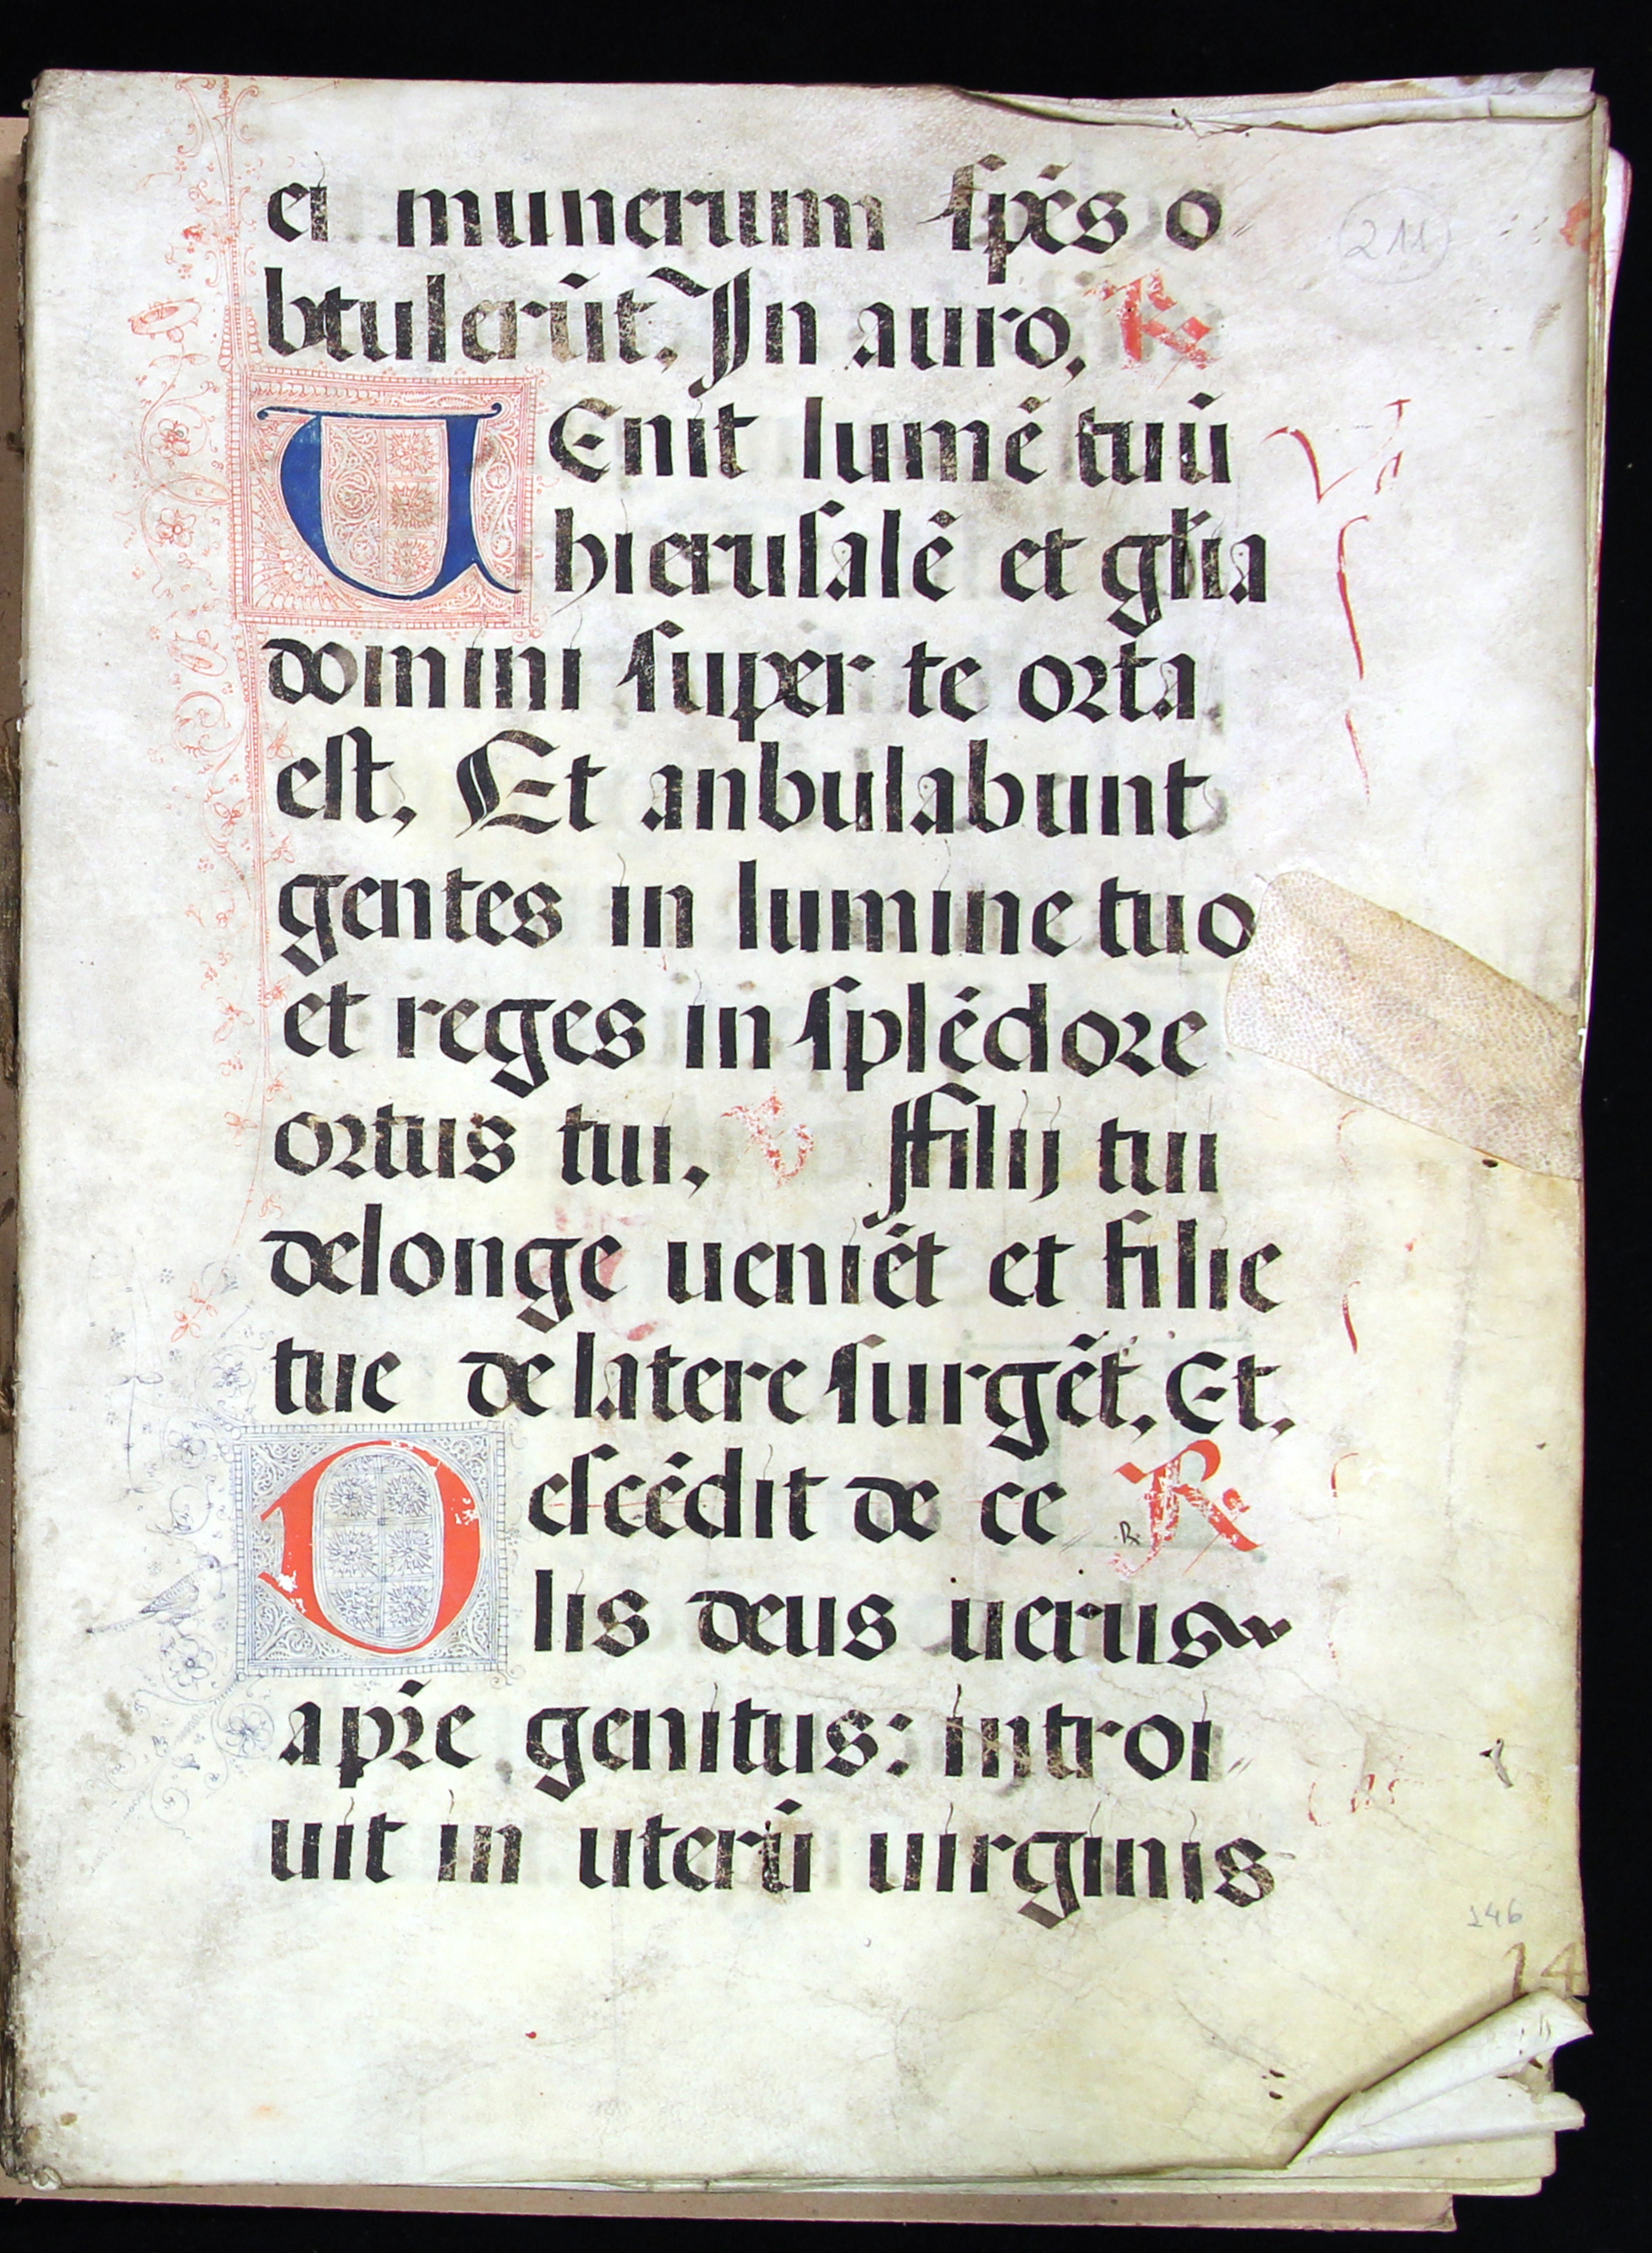 ei munerum spẽs o
btulerũt. In auro. ℟
UEnit lumẽ tuũ
hierusalẽ et glĩa
domini super te orta
est. Et anbulabunt
gentes in lumine tuo
et reges in splẽdore
ortus tui. ℣ ffilij tui
delonge ueniẽt et filie
tue de latere surgẽt. Et.
Descẽdit de ce ℟
lis deus uerus
a pr̃e genitus: introi
uit in uterũ uirginis
211
146
14